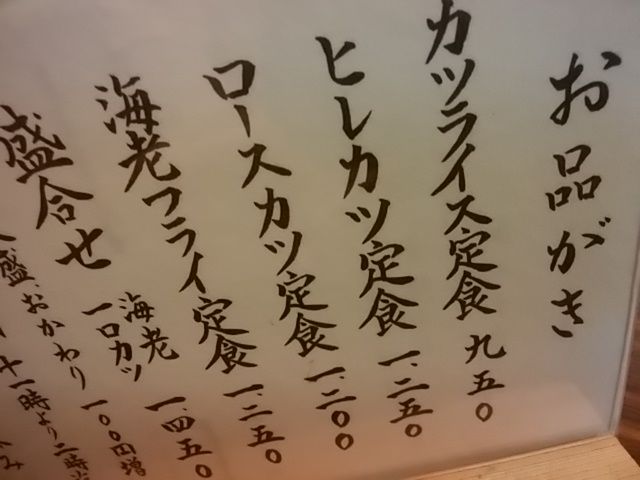 お品がき
カツライス定食 九五〇
ヒレカツ定食 一、二五〇
ロースカツ定食 一、二〇〇
海老フライ定食 一、二五〇
盛合せ 海老 一口カツ 一、四五〇
盛、おかわり 一〇〇円増
十一時より二時